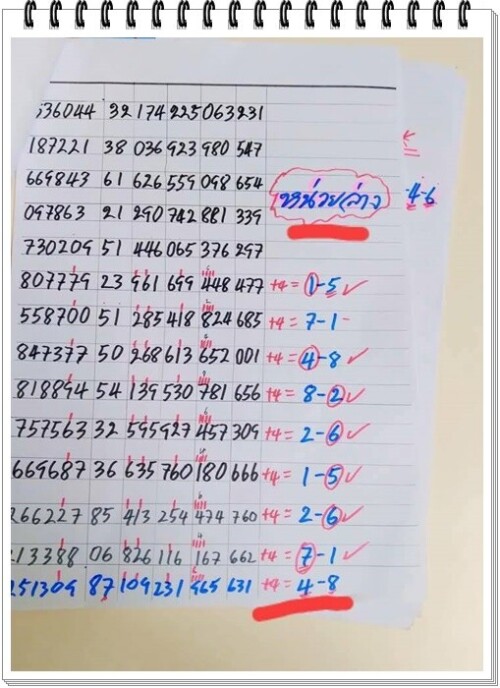 536044 32 174 225 063 231
187221 38 036 923 980 547
669843 61 626 559 098 654
หน่วยล่าง
4-6
097863 21 290 742 881 339
730209 51 446 065 376 297
807779 23 961 699 448 477 +4= 1-5 ✓
558700 51 285 418 824 685 +4= 7-1 -
847377 50 268 613 652 001 +4= 4-8 ✓
818894 54 139 530 781 656 +4= 8-2 ✓
757563 32 595 927 457 309 +4= 2-6 ✓
669687 36 635 760 180 666 +4= 1-5 ✓
266227 85 413 254 474 760 +4= 2-6 ✓
213388 06 826 116 167 662 +4= 7-1 ✓
251309 87 109 231 965 631 +4= 4-8